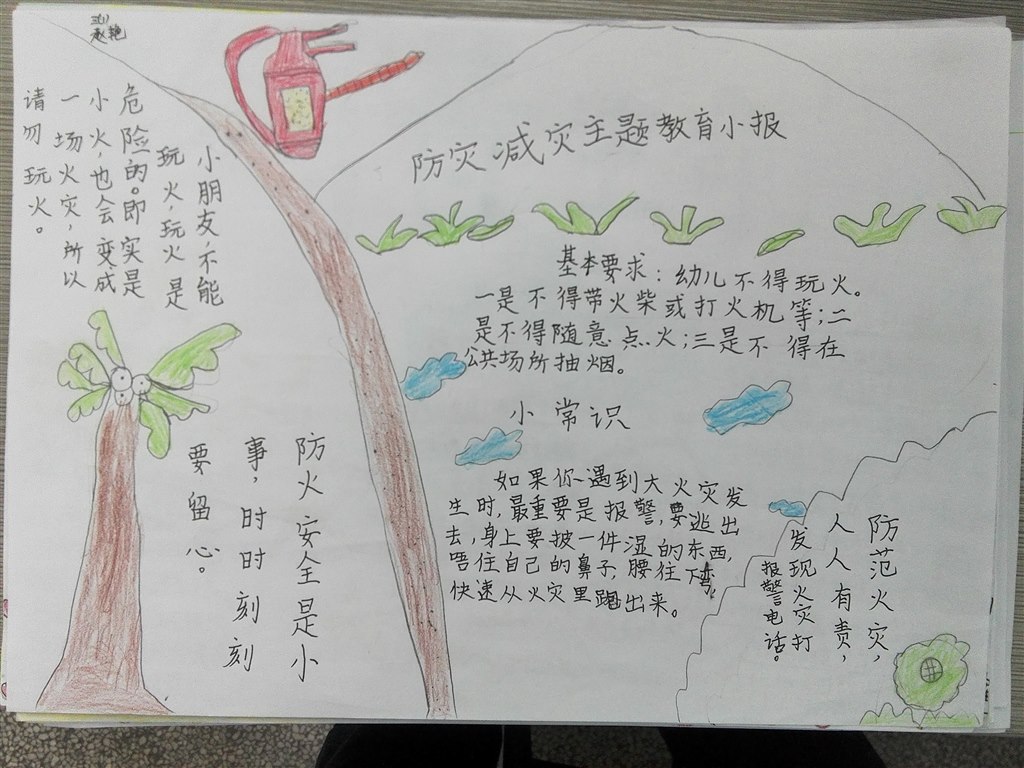 防灾减灾主题教育小报
小朋友,不能
玩火,玩火是
危险的。即实是
小火,也会变成
一场火灾,所以
请勿玩火。
基本要求:幼儿不得玩火。
一是不得带火柴或打火机等;二
是不得随意点火;三是不得在
公共场所抽烟。
小常识
如果你遇到大火灾发
生时,最重要是报警,要逃出
去,身上要披一件湿的东西,
唔住自己的鼻子,腰往下弯,
快速从火灾里跑出来。
防火安全是小
事,时时刻刻
要留心。
防范火灾,
人人有责,
发现火灾打
报警电话。